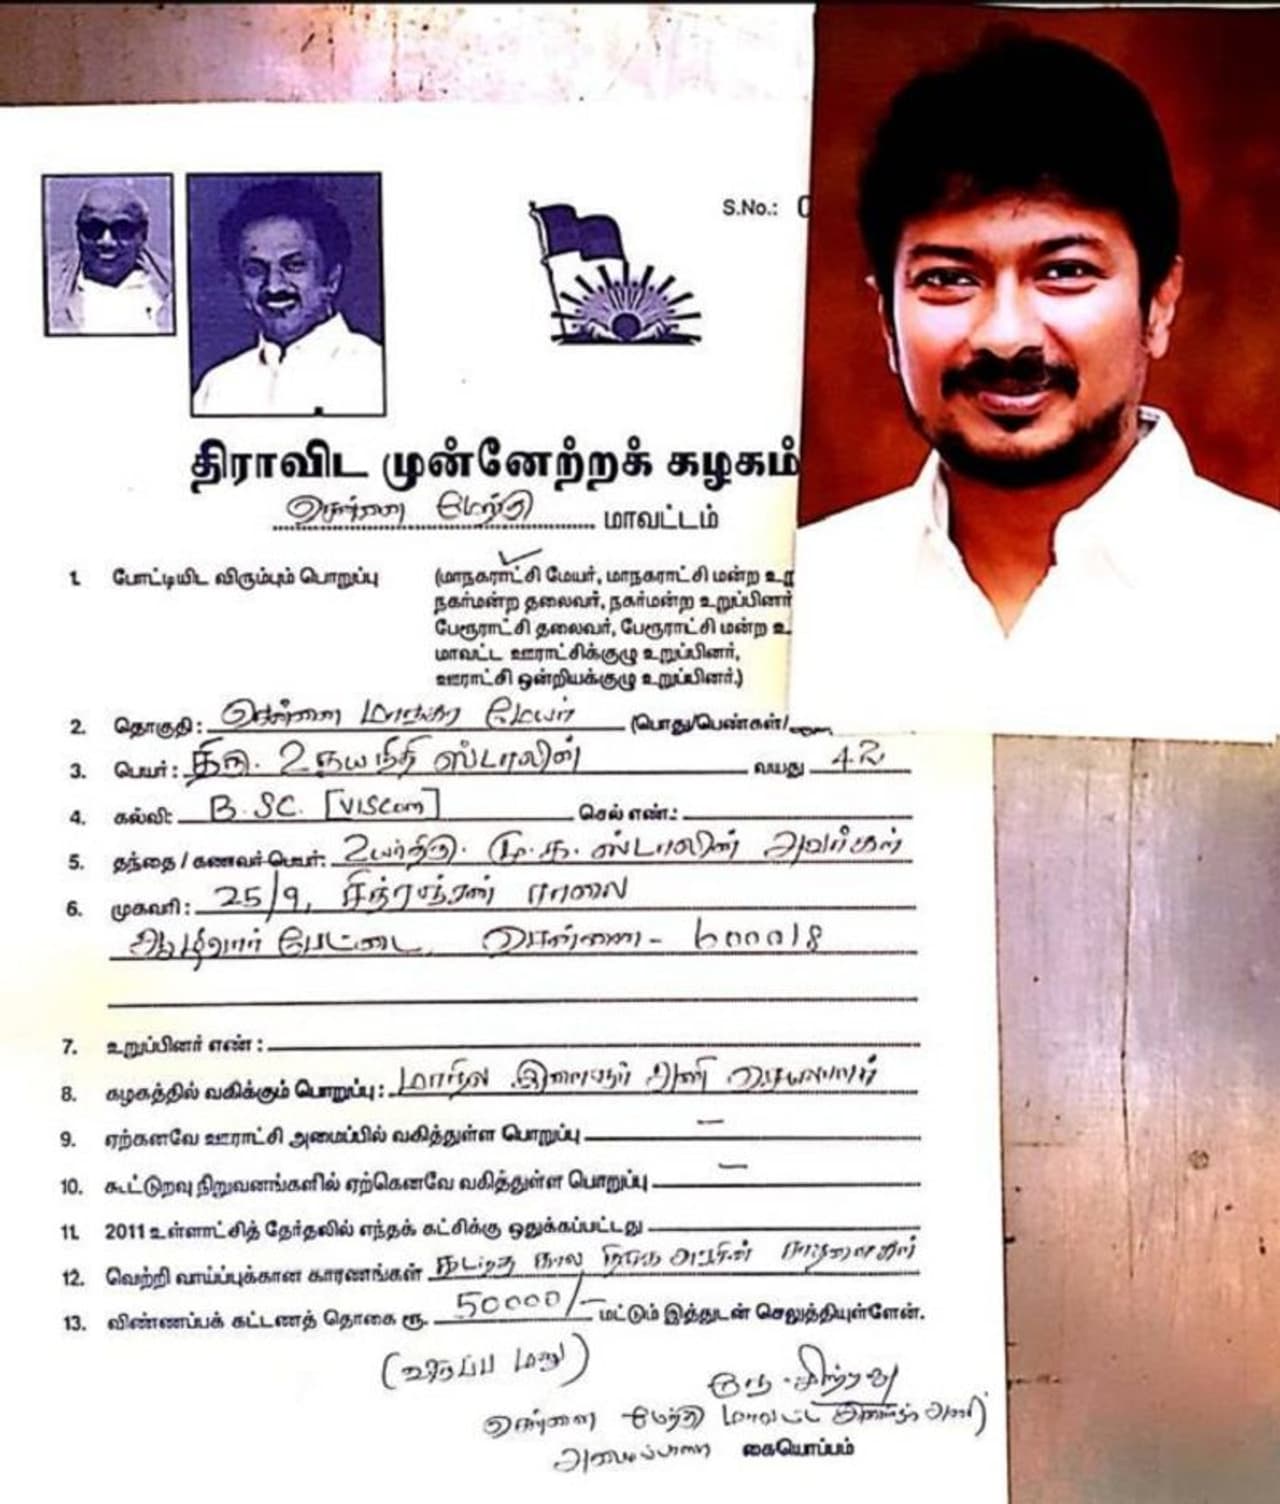 S.No.: 0
திராவிட முன்னேற்றக் கழகம்
சென்னை மேற்கு மாவட்டம்
1. போட்டியிட விரும்பும் பொறுப்பு (மாநகராட்சி மேயர், மாநகராட்சி மன்ற உறு
நகர்மன்ற தலைவர், நகர்மன்ற உறுப்பினர்
பேரூராட்சி தலைவர், பேரூராட்சி மன்ற உ
மாவட்ட ஊராட்சிக்குழு உறுப்பினர்,
ஊராட்சி ஒன்றியக்குழு உறுப்பினர்.)
2. தொகுதி: சென்னை மாநகர மேயர் (பொது/பெண்கள்/
3. பெயர்: திரு. உதயநிதி ஸ்டாலின் வயது 42
4. கல்வி: B.SC. [VISCom] செல் எண்.:
5. தந்தை / கணவர் பெயர்: உயர்திரு. மு.க. ஸ்டாலின் அவர்கள்
6. முகவரி: 25/9, சித்ரஞ்சன் சாலை
ஆழ்வார் பேட்டை, சென்னை - 600018
7. உறுப்பினர் எண் :
8. கழகத்தில் வகிக்கும் பொறுப்பு: மாநில இளைஞர் அணி செயலாளர்
9. ஏற்கனவே ஊராட்சி அமைப்பில் வகித்துள்ள பொறுப்பு –
10. கூட்டுறவு நிறுவனங்களில் ஏற்கெனவே வகித்துள்ள பொறுப்பு –
11. 2011 உள்ளாட்சித் தேர்தலில் எந்தக் கட்சிக்கு ஒதுக்கப்பட்டது
12. வெற்றி வாய்ப்புக்கான காரணங்கள் கடந்த கால சாதனைகள்
13. விண்ணப்பக் கட்டணத் தொகை ரூ. 50000/- மட்டும் இத்துடன் செலுத்தியுள்ளேன்.
(விருப்ப மனு)
சிற்றரசு
சென்னை மேற்கு மாவட்ட இளைஞர் அணி
அமைப்பாளர் கையொப்பம்